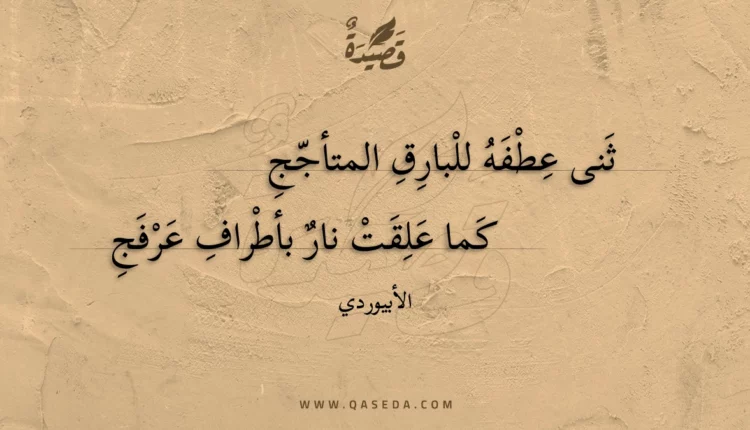 قَصِيدَةٌ
ثَنى عِطْفَهُ للْبارِقِ المتأجّجِ
كَما عَلِقَتْ نارٌ بأطْرافِ عَرْفَجِ
الأبيوردي
WWW.QASEDA.COM